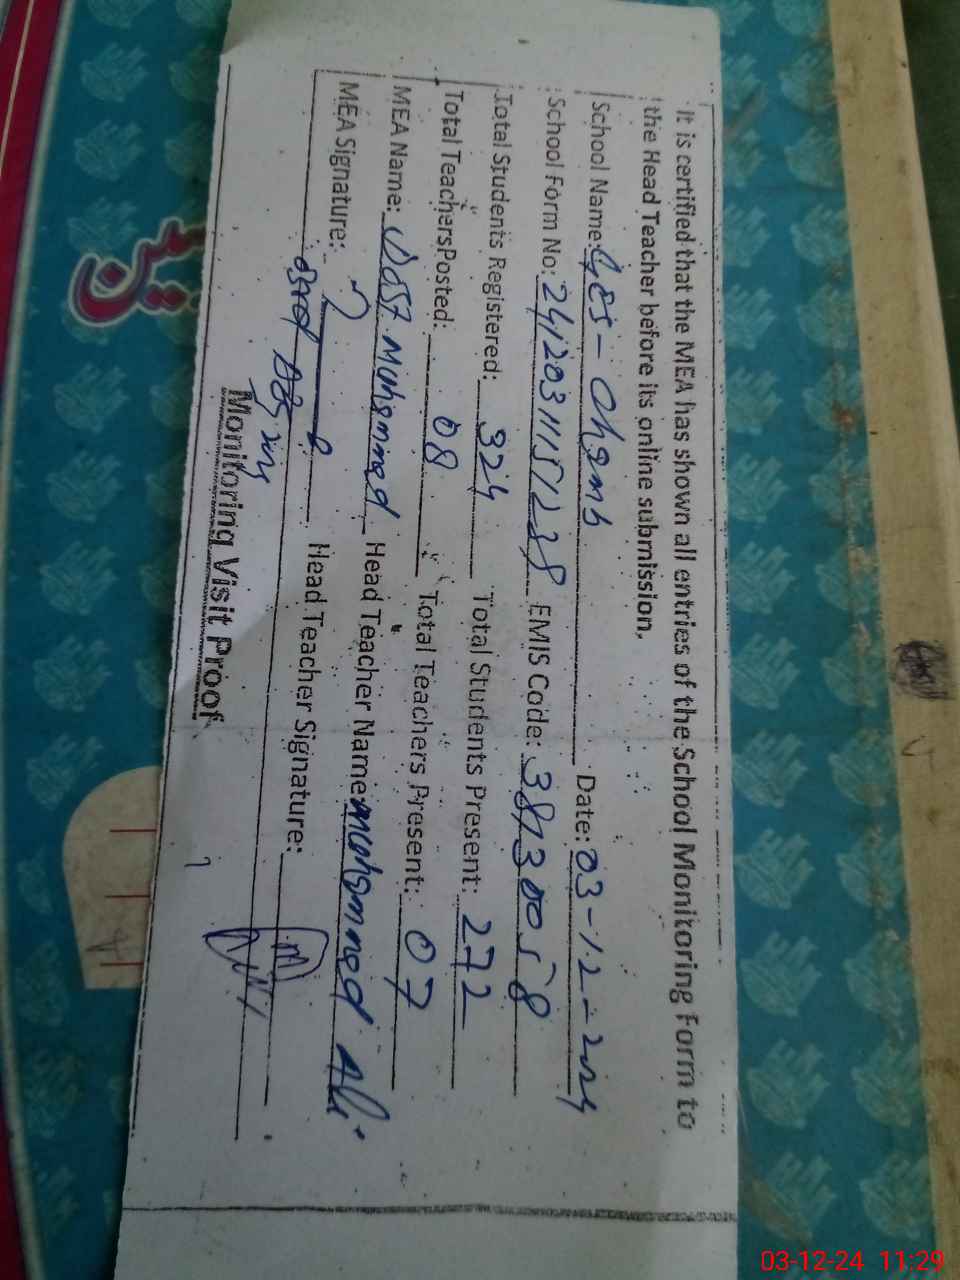 It is certified that the MEA has shown all entries of the School Monitoring Form to
the Head Teacher before its online submission.
School Name: GES - Chamb Date: 03-12-2024
School Form No: 2412031115/238 EMIS Code: 38130058
Total Students Registered: 324 Total Students Present: 272
Total Teachers Posted: 08 Total Teachers Present: 07
MEA Name: Dost Muhammad Head Teacher Name: Muhammad Ali
MEA Signature: Head Teacher Signature:
Monitoring Visit Proof
03-12-24 11:29